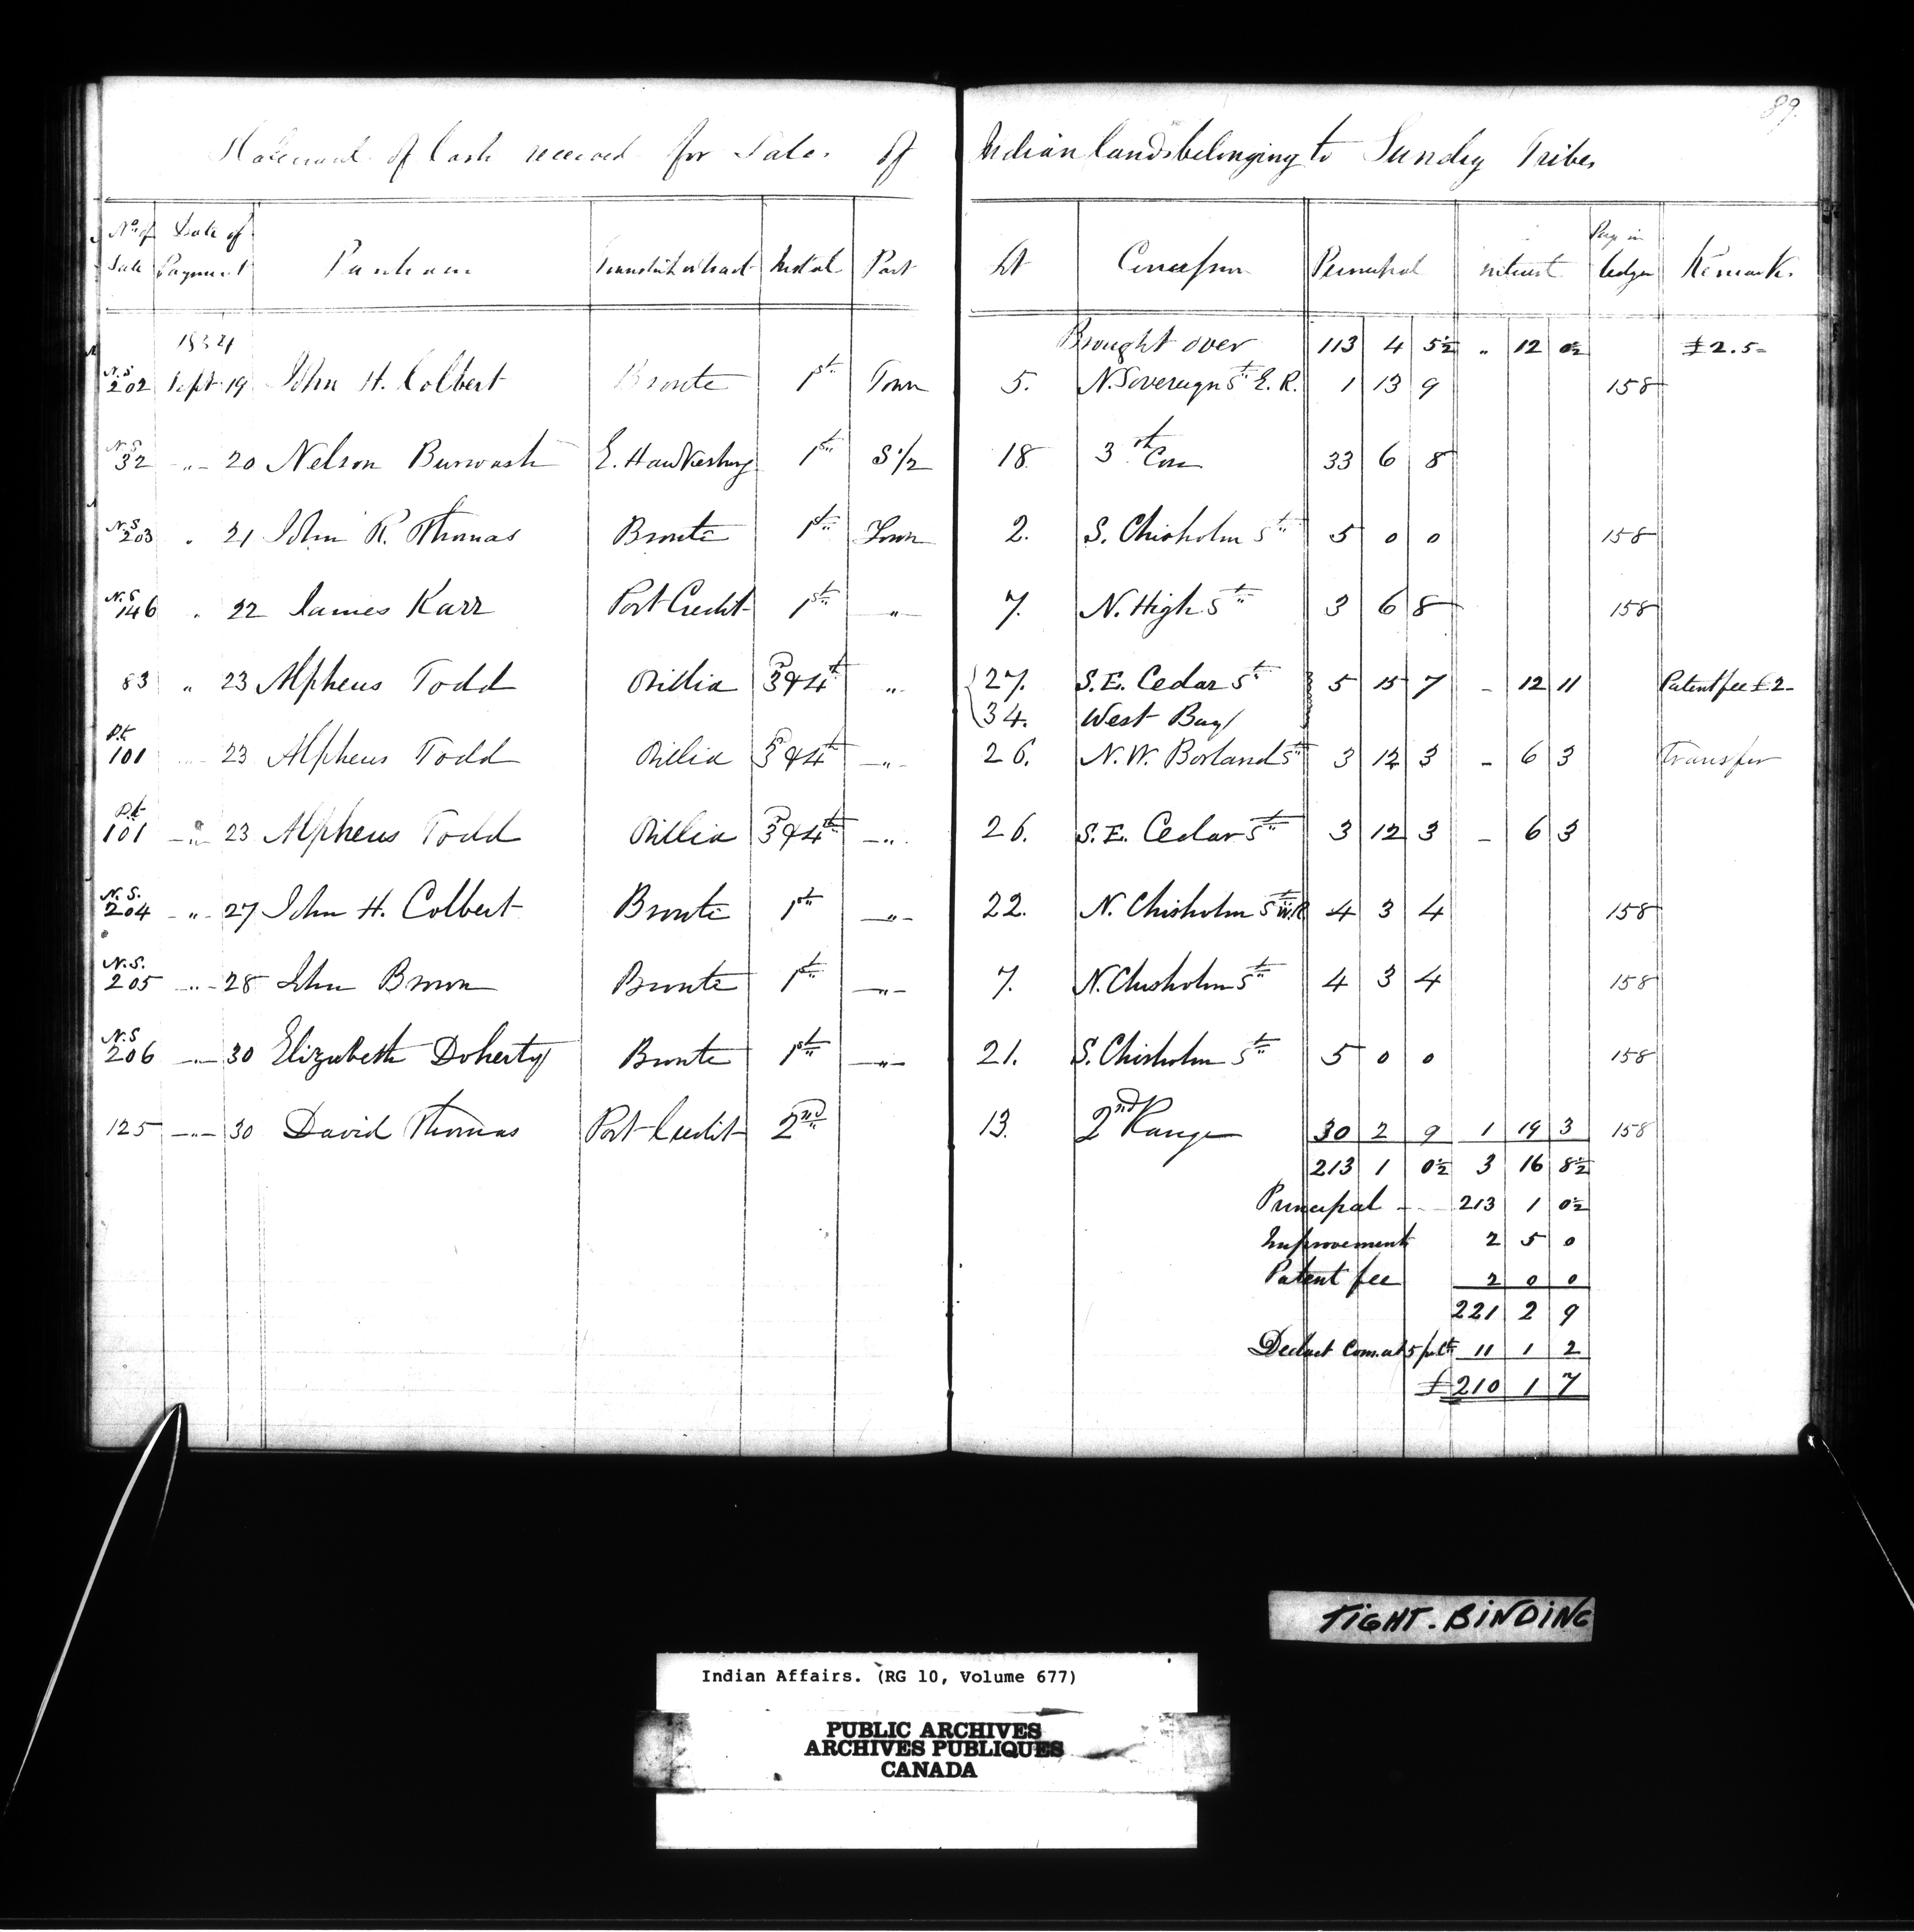 89.
Statement of Cash received for Sales of Indian lands belonging to Sundry Tribes
No of Sale Date of Payment Purchaser Township or Tract Instal Part Lot Concession Principal interest Page in ledger Remarks
1854 Brought over 113 4 5½ " 12 0½ £2.5-
N.S 202 Sept 19 John H. Colbert Bronte 1st Town 5. N. Sovereign St E.R. 1 13 9 158
N.S 32 -"- 20 Nelson Burwash E. Hawkesbury 1st S 1/2 18 3rd Con 33 6 8
N.S 203 " 21 John R. Thomas Bronte 1st Town 2. S. Chisholm St 5 0 0 158
N.S 146 " 22 James Karr Port Credit 1st -"- 7. N. High St 3 6 8 158
83 " 23 Alpheus Todd Orillia 3 & 4th " 27. S.E. Cedar St 5 15 7 - 12 11 Patent fee £2-
34. West Bay
Pt 101 23 Alpheus Todd Orillia 3 & 4th -"- 26. N.W. Borland St 3 12 3 - 6 3 Transfer
Pt 101 -"- 23 Alpheus Todd Orillia 3 & 4th -"- 26. S.E. Cedar St 3 12 3 - 6 3
N.S. 204 -"- 27 John H. Colbert Bronte 1st -"- 22. N. Chisholm St W.R 4 3 4 158
N.S. 205 -"- 28 John Brown Bronte 1st -"- 7. N. Chisholm St 4 3 4 158
N.S 206 -"- 30 Elizabeth Doherty Bronte 1st -"- 21. S. Chisholm St 5 0 0 158
125 -"- 30 David Thomas Port Credit 2nd 13. 2nd Range 30 2 9 1 19 3 158
213 1 0½ 3 16 8½
Principal 213 1 0½
Improvements 2 5 0
Patent fee 2 0 0
221 2 9
Deduct Com. at 5 pr Ct 11 1 2
£210 1 7
TIGHT. BINDING
Indian Affairs. (RG 10, Volume 677)
PUBLIC ARCHIVES
ARCHIVES PUBLIQUES
CANADA